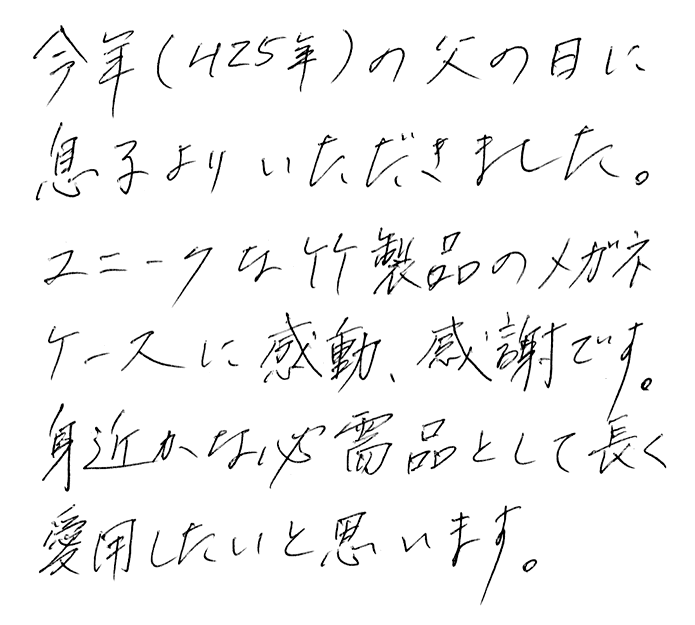 今年(H25年)の父の日に
息子よりいただきました。
ユニークな竹製品のメガネ
ケースに感動、感謝です。
身近かな必需品として長く
愛用したいと思います。